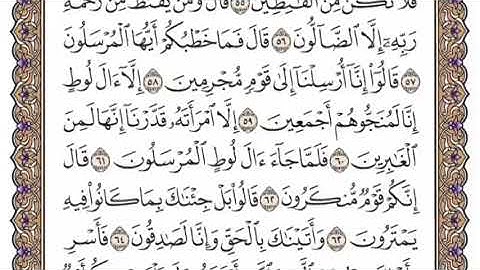 فَلَا تَكُن مِّنَ ٱلْقَٰنِطِينَ ٥٥ قَالَ وَمَن يَقْنَطُ مِن رَّحْمَةِ
رَبِّهِۦٓ إِلَّا ٱلضَّآلُّونَ ٥٦ قَالَ فَمَا خَطْبُكُمْ أَيُّهَا ٱلْمُرْسَلُونَ
٥٧ قَالُوٓا۟ إِنَّآ أُرْسِلْنَآ إِلَىٰ قَوْمٍ مُّجْرِمِينَ ٥٨ إِلَّآ ءَالَ لُوطٍ
إِنَّا لَمُنَجُّوهُمْ أَجْمَعِينَ ٥٩ إِلَّا ٱمْرَأَتَهُۥ قَدَّرْنَآ إِنَّهَا لَمِنَ
ٱلْغَٰبِرِينَ ٦٠ فَلَمَّا جَآءَ ءَالَ لُوطٍ ٱلْمُرْسَلُونَ ٦١ قَالَ
إِنَّكُمْ قَوْمٌ مُّنكَرُونَ ٦٢ قَالُوا۟ بَلْ جِئْنَٰكَ بِمَا كَانُوا۟ فِيهِ
يَمْتَرُونَ ٦٣ وَأَتَيْنَٰكَ بِٱلْحَقِّ وَإِنَّا لَصَٰدِقُونَ ٦٤ فَأَسْرِ